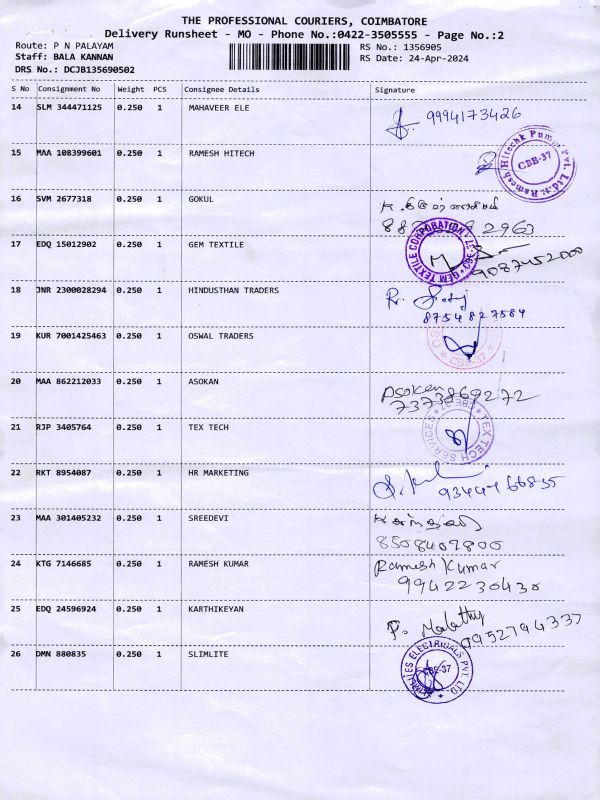 THE PROFESSIONAL COURIERS, COIMBATORE
Delivery Runsheet - MO - Phone No.:0422-3505555 - Page No.:2
Route: P N PALAYAM
RS No.: 1356905
Staff: BALA KANNAN
RS Date: 24-Apr-2024
DRS No.: DCJB135690502
S No Consignment No Weight PCS Consignee Details Signature
14 SLM 344471125 0.250 1 MAHAVEER ELE 9994173426
15 MAA 108399601 0.250 1 RAMESH HITECH
Ramesh Hitechk Pumps Pvt. Ltd. CBE-37
16 SVM 2677318 0.250 1 GOKUL
17 EDQ 15012902 0.250 1 GEM TEXTILE
GEM TEXTILE CORPORATION CBE-37
9087452000
18 JNR 2300028294 0.250 1 HINDUSTHAN TRADERS
8754827584
19 KUR 7001425463 0.250 1 OSWAL TRADERS
CBE-37
20 MAA 862212033 0.250 1 ASOKAN Asokan
7373869272
21 RJP 3405764 0.250 1 TEX TECH
TEX TECH SERVICES CBE-37
22 RKT 8954087 0.250 1 HR MARKETING
23 MAA 301405232 0.250 1 SREEDEVI
8508409800
24 KTG 7146685 0.250 1 RAMESH KUMAR Ramesh Kumar
9942230430
25 EDQ 24596924 0.250 1 KARTHIKEYAN P. Malathy
9952794337
26 DMN 880835 0.250 1 SLIMLITE
ELECTRICALS PVT. LTD. CBE-37